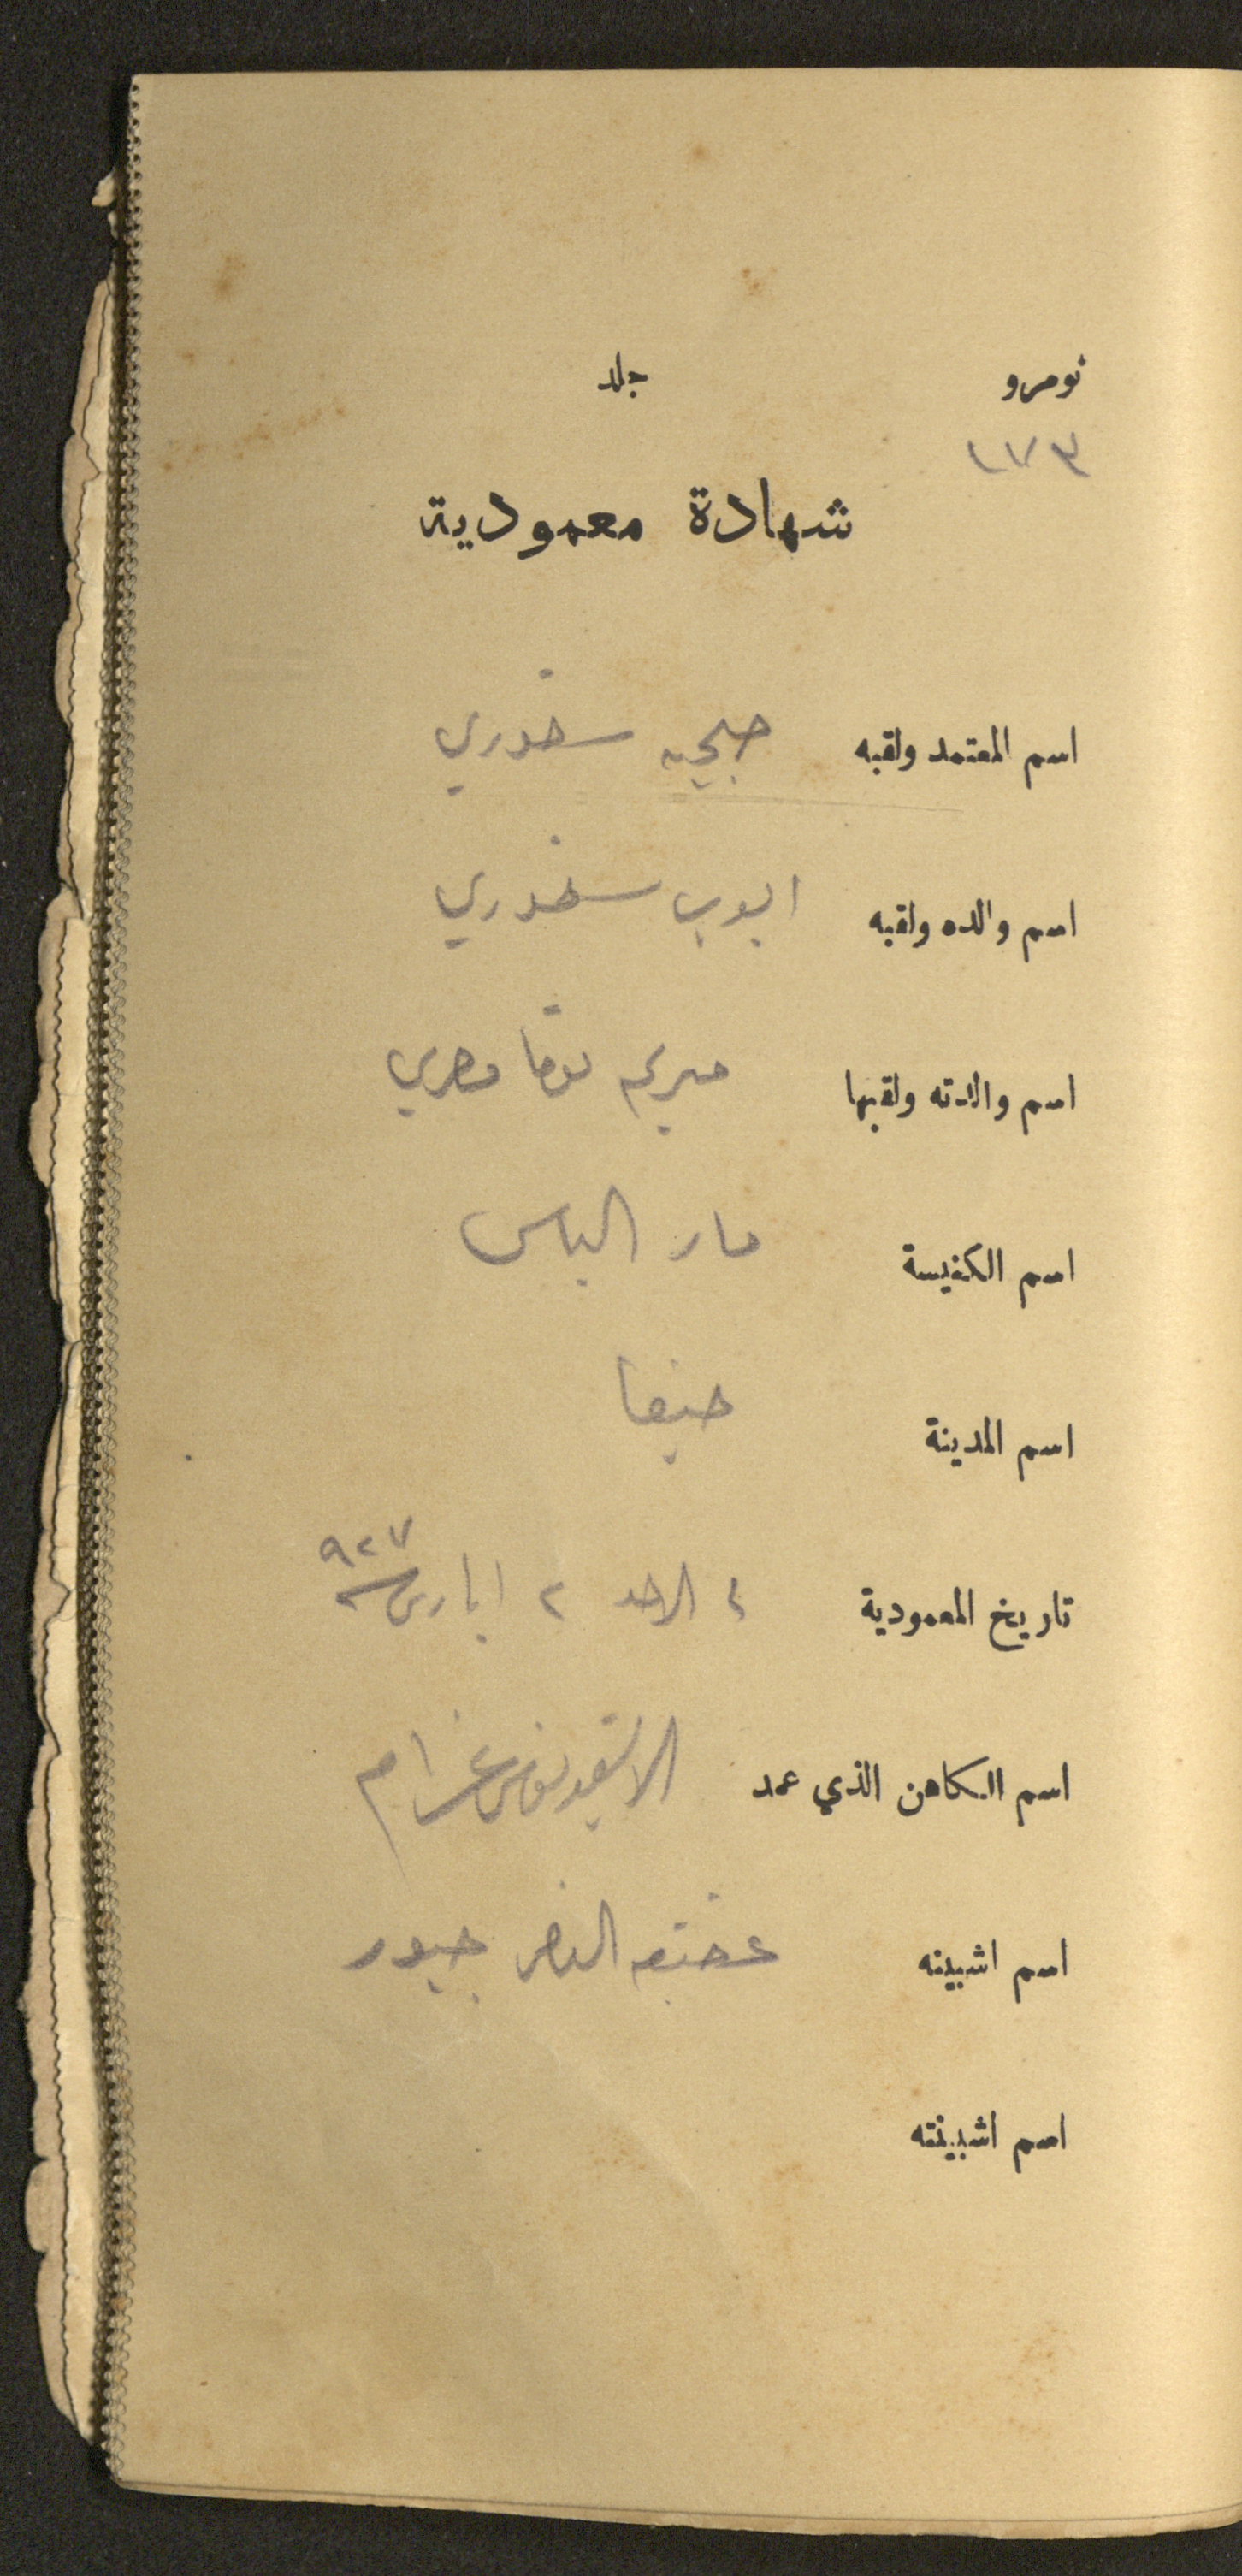 نومرو جلد
١٧٣
شهادة معمودية
اسم المعتمد ولقبه صبحيه سخوري
اسم والده ولقبه ايوب سخوري
اسم والدته ولقبها مريم لوقا مصري
اسم الكنيسة مار الياس
اسم المدينة حيفا
تاريخ المعمودية الاحد ٢ ايار سنة ٩٢٧
اسم الكاهن الذي عمد غرام
اسم اشبينه جبور
اسم اشبينته